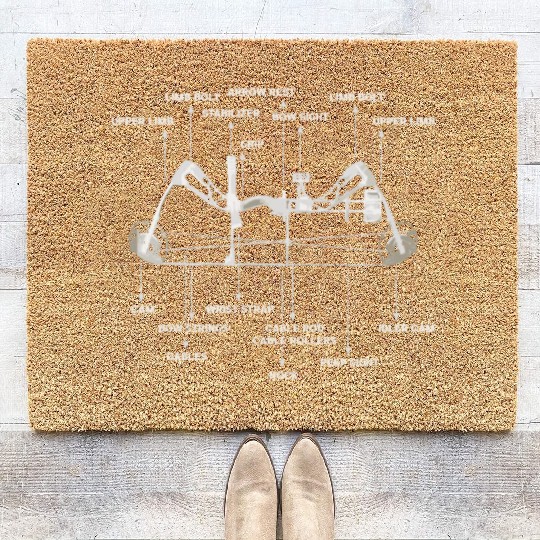 LIMB BOLT ARROW REST LIMB BOLT
UPPER LIMB STABILIZER BOW SIGHT UPPER LIMB
GRIP
CAM WRIST STRAP
BOW STRINGS CABLE ROD IDLER CAM
CABLES CABLE ROLLERS PEEP SIGHT
NOCK